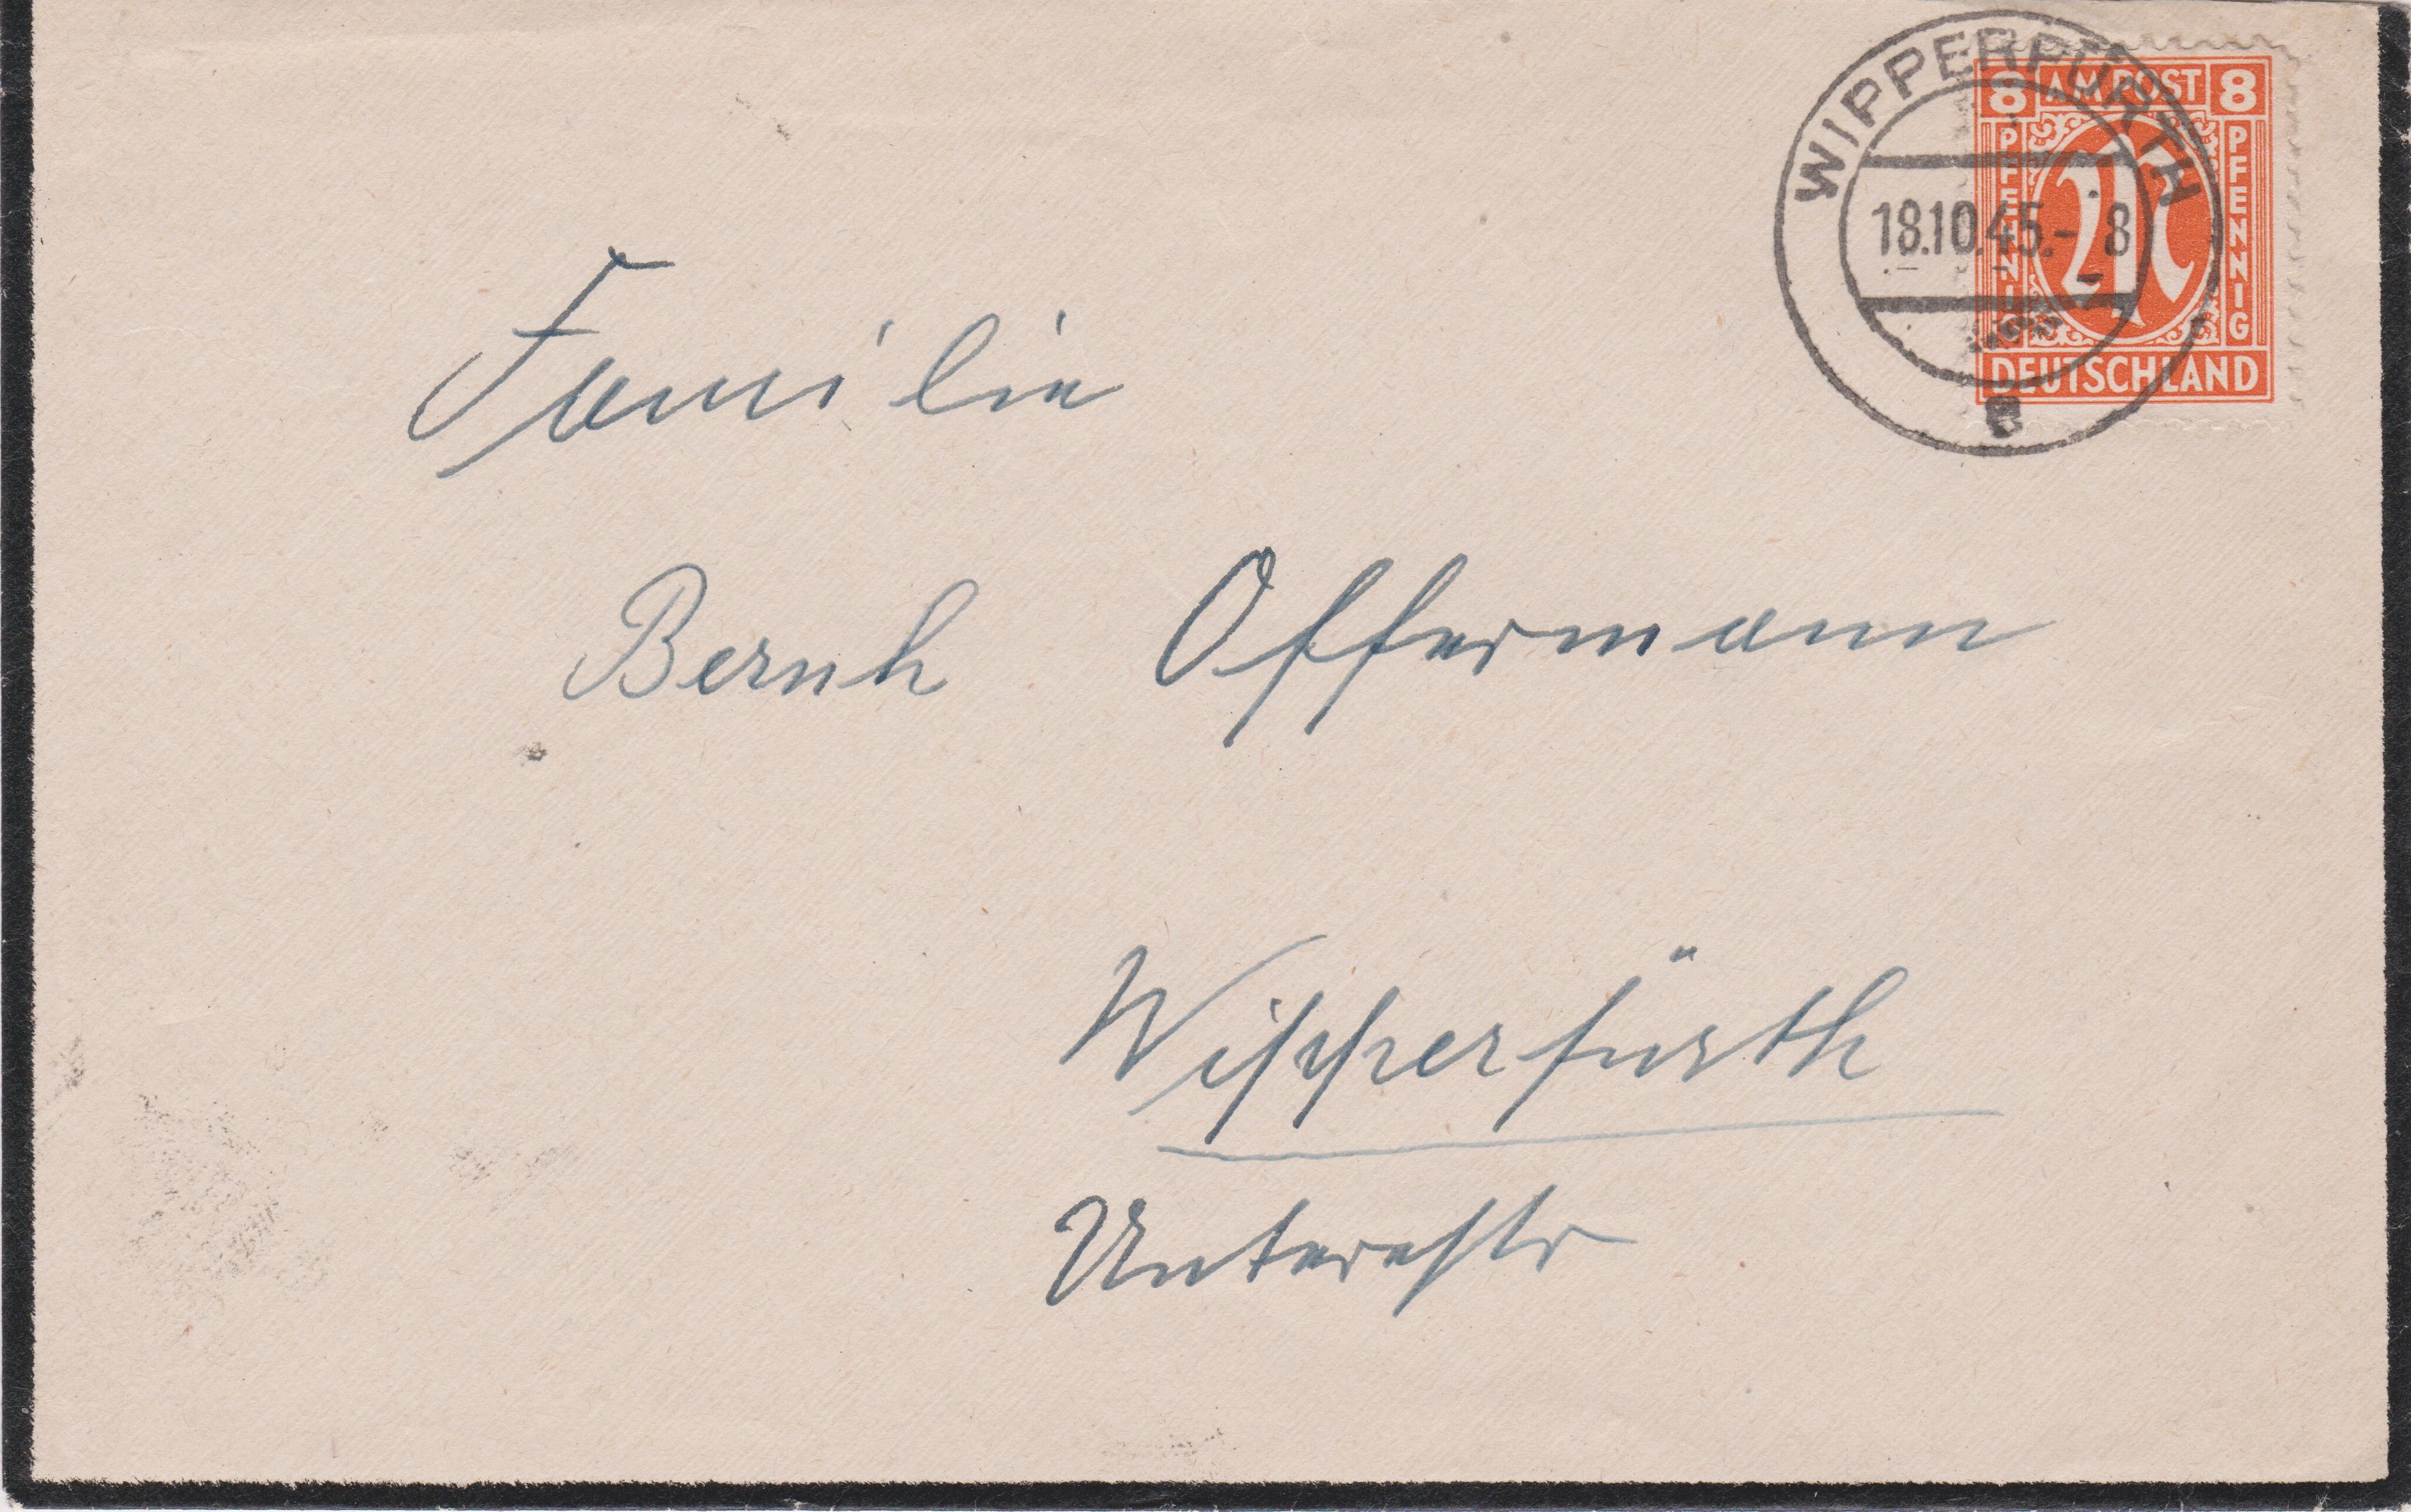 WIPPERFÜRTH
18.10.45.-8
8 AM POST 8
PFENNIG
PFENNIG
M
DEUTSCHLAND
Familie
Bernh Offermann
Wipperfürth
Unterestr